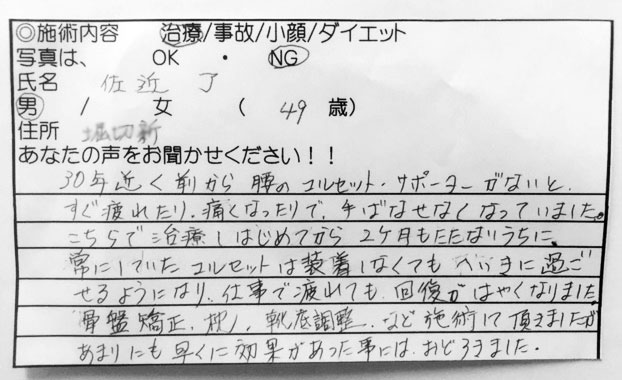 ◎施術内容　治療/事故/小顔/ダイエット
写真は、　OK　・　NG
氏名　佐近　了
男　/　女　（　49　歳）
住所　堀切新
あなたの声をお聞かせください！！
30年近く前から腰のコルセット・サポーターがないと、
すぐ疲れたり、痛くなったりで、手ばなせなくなっていました。
こちらで治療しはじめてから2ケ月もたたないうちに、
常にしていたコルセットは装着しなくてもへいきに過ご
せるようになり、仕事で疲れても、回復がはやくなりました。
骨盤矯正、枕、靴底調整、など施術して頂きましたが
あまりにも早くに効果があった事には、おどろきました。